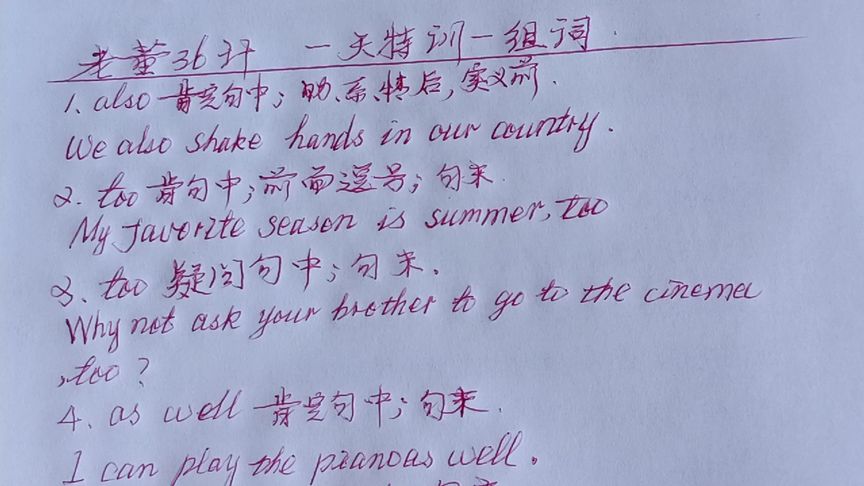 老董36计 一天特训一组词.
1. also 肯定句中; 助、系、情后, 实义前.
We also shake hands in our country.
2. too 肯句中; 前面逗号; 句末.
My favorite season is summer, too
3. too 疑问句中; 句末.
Why not ask your brother to go to the cinema
, too?
4. as well 肯定句中; 句末.
I can play the piano as well.